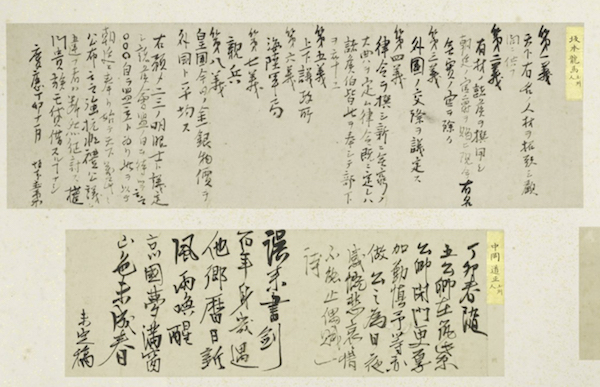 坂本龍馬
第一義
天下有名ノ人材ヲ招致シ顧
問ニ供フ
第二義
有材ノ諸侯ヲ撰用シ
朝廷ノ官爵ヲ賜ヒ現今有名
無実ノ官ヲ除ク
第三義
外國ノ交際ヲ議定ス
第四義
律令ヲ撰シ新ニ無窮ノ
大典ヲ定ム律令既ニ定レハ
諸侯伯皆此ヲ奉シテ部下
ヲ率ユ
第五義
上下議政所
第六義
海陸軍局
第七義
親兵
第八義
皇國今日ノ金銀物價ヲ
外國ト平均ス
右預メ二三ノ明眼士ト議定
シ諸侯會盟ノ日ヲ待ツテ云云
○○○自ラ盟主ト為リ此ヲ以テ
朝廷ニ奉リ始テ天下萬民ニ
公布云云強抗非禮公議ニ
違フ者ハ断然征討ス權
門貴族モ貸借スルコトナシ
慶應丁卯十一月 坂本直柔
中岡
丁卯春随
五公卿在筑紫
公卿閉門更専
加勤慎予等亦
倣公之為日夜
感慨悲哀惜
不能止偶賦一
詩
誤来書剣
百年身幾遇
他郷暦日新
風雨喚醒
京國夢満窗
山色未成春
未定稿